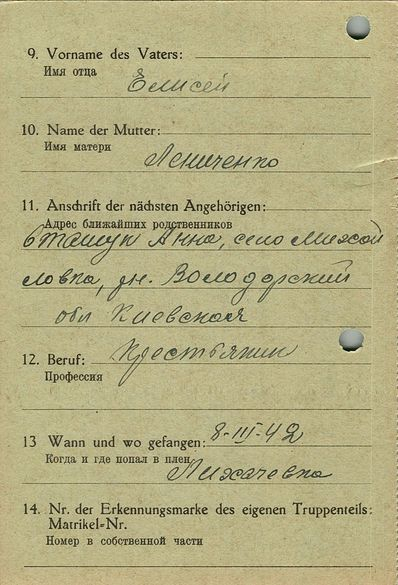 9. Vorname des Vaters:
Имя отца
Елисей
10. Name der Mutter:
Имя матери
Лениченко
11. Anschrift der nächsten Angehörigen:
Адрес ближайших родственников
Анна, село Михай
ловка, рн. Володарский
обл Киевская
12. Beruf: Крестьянин
Профессия
13 Wann und wo gefangen: 8-III-42
Когда и где попал в плен
Лихачевка
14. Nr. der Erkennungsmarke des eigenen Truppenteils:
Matrikel-Nr.
Номер в собственной части